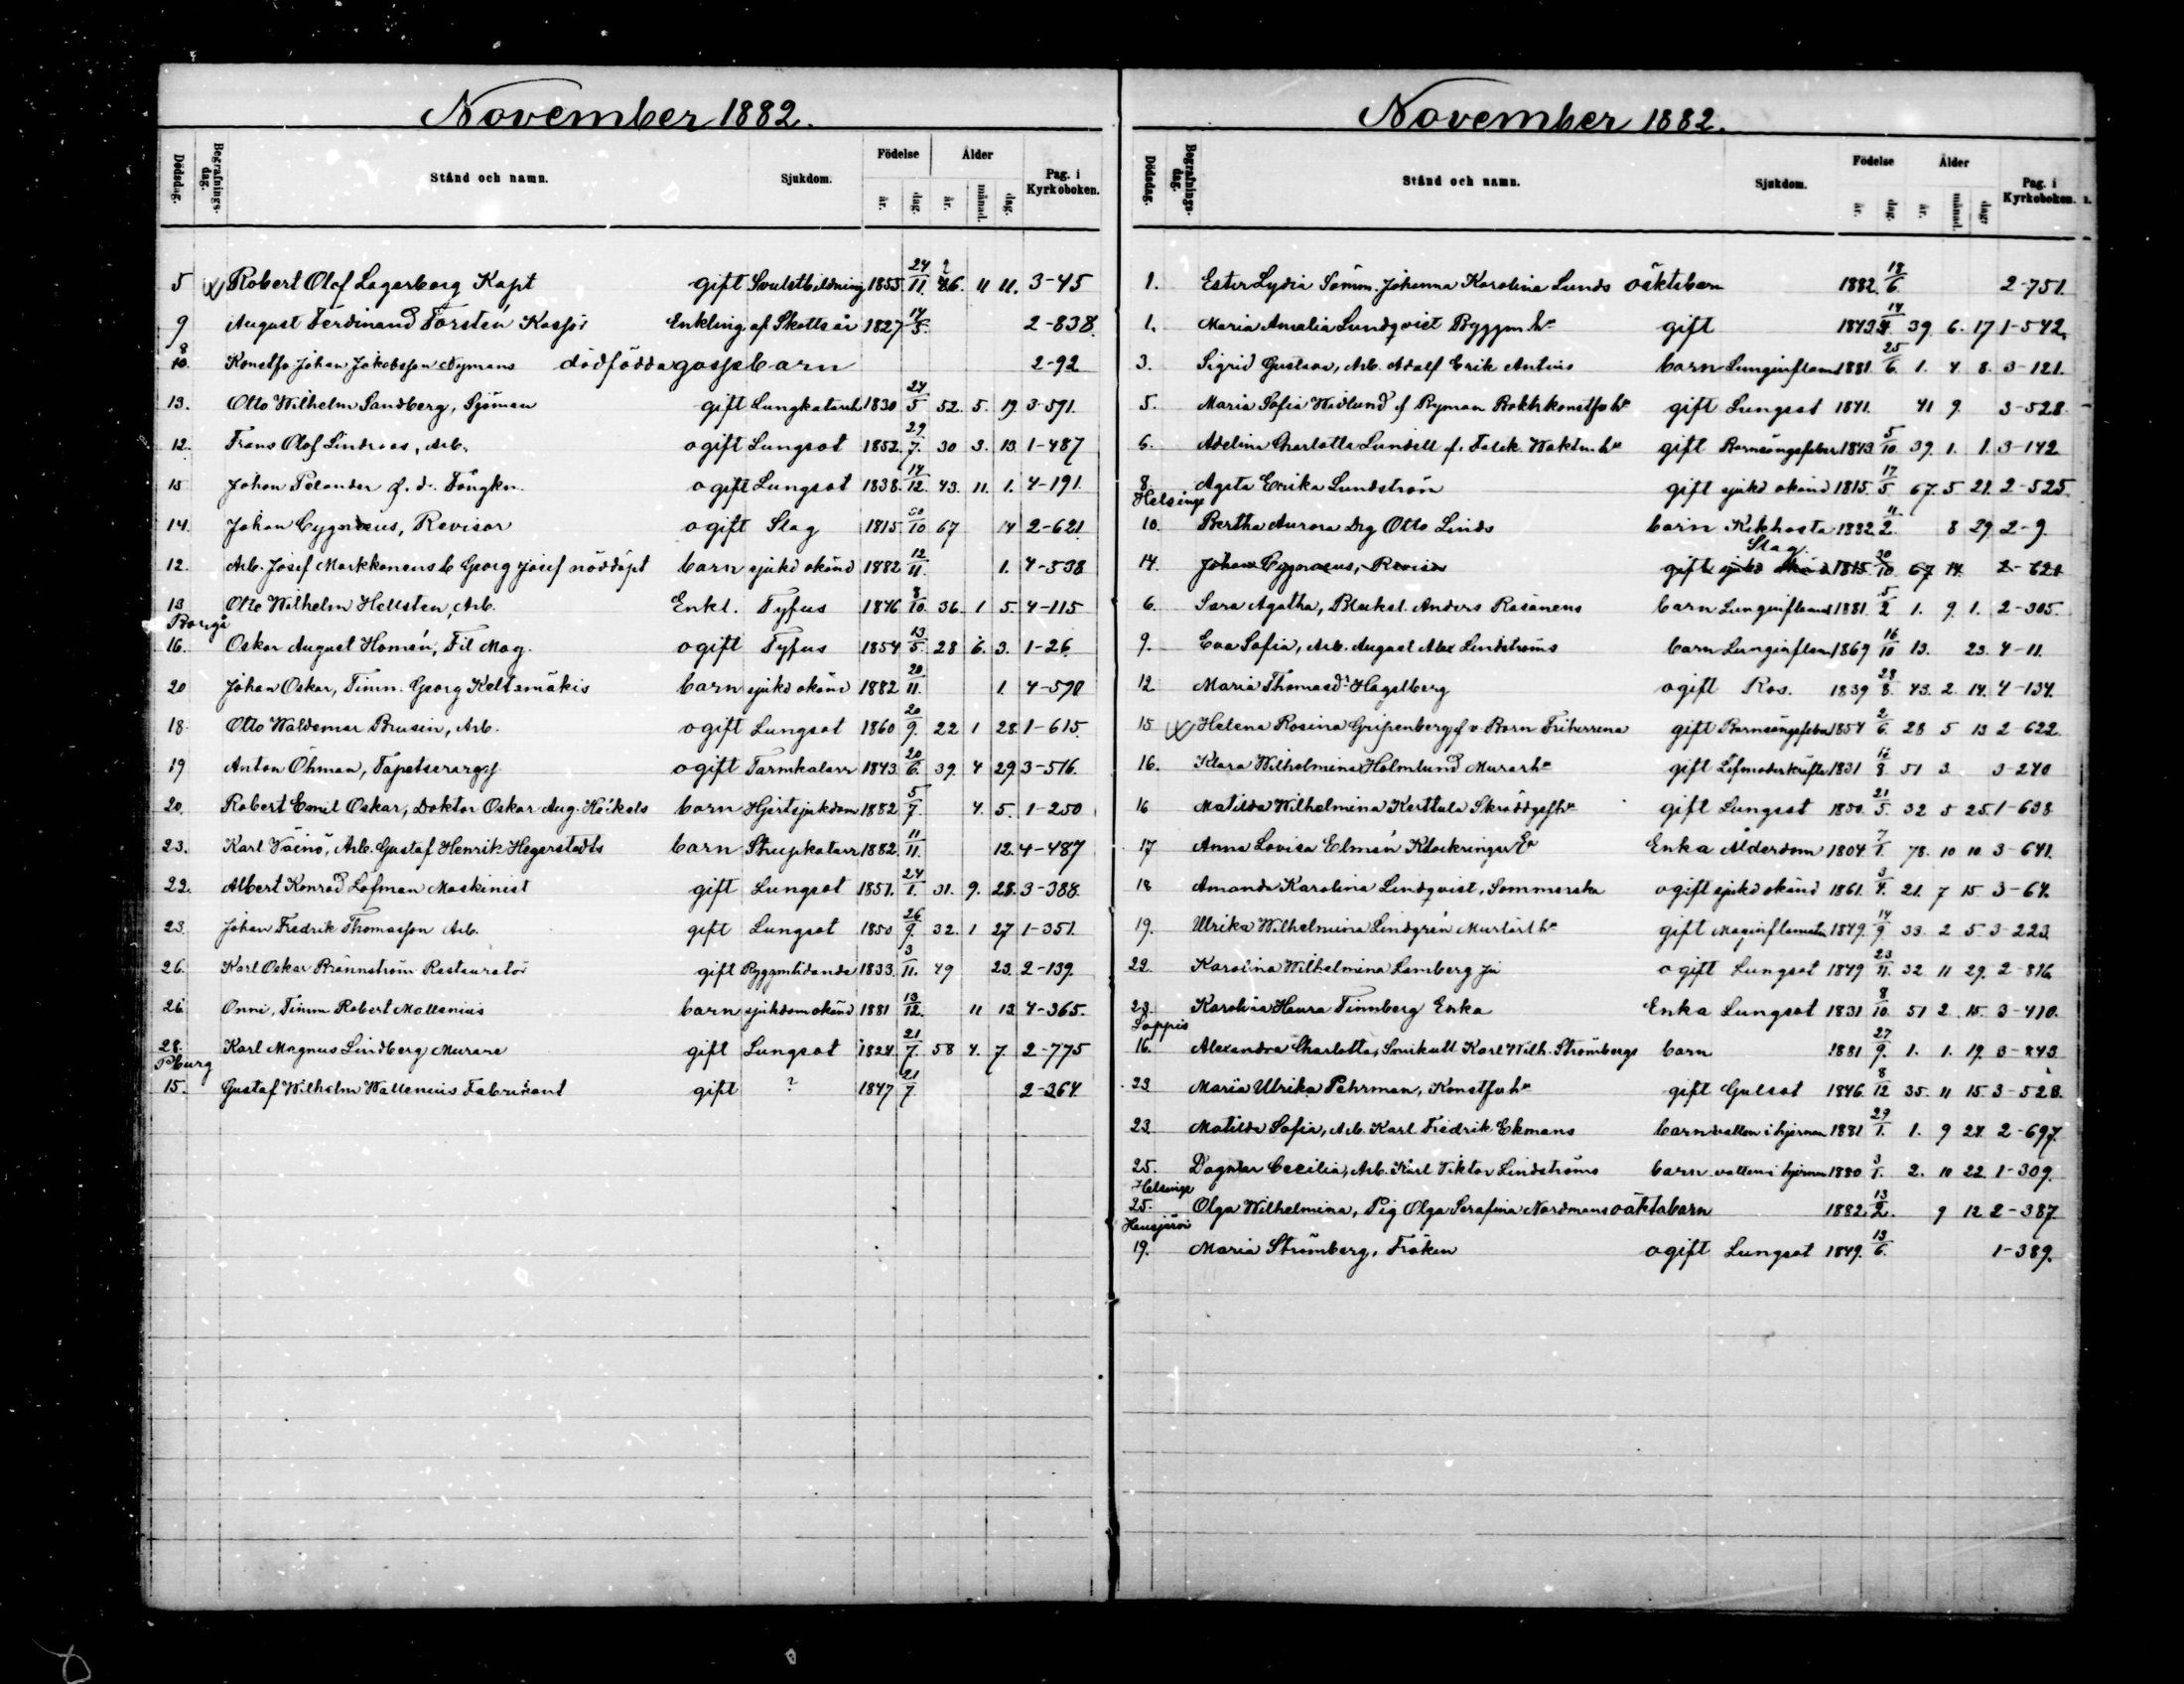 November 1882.
Dödsdag. Begrafningsdag. Stånd och namn. Sjukdom. Födelse år. dag. Ålder år. månad. dag. Pag. i Kyrkoboken.
5 Robert Olof Lagerborg Kapt gift Svulstbildning 1835 24/11. 46. 11 11. 3-45
9 August Ferdinand Forstén Kassör Enkling af Skottsår 1827 14/5. 2-838.
8
10. Konstfo Johan Jakobsson Nymans dödfödda gossebarn 2-92
13. Otto Wilhelm Sandberg, Sjöman gift Lungkatarrh 1830 24/5 52. 5. 19. 3-591.
12. Frans Olof Lindroos, Arb. ogift Lungsot 1852. 29/7. 30 3. 13. 1-487
15 Johan Pelander f. d. Fångkn. ogift Lungsot 1838. 14/12. 43. 11. 1. 4-191.
14. Johan Cygnaeus, Revisor ogift Slag 1815 30/10 67 14 2-621.
12. Arb. Josef Markkanens b Georg Josef nöddöpt barn sjukd okänd 1882 12/11. 1. 4-538
13 Otto Wilhelm Hellsten, Arb. Enkl. Tyfus 1846 8/10. 36. 1 5. 4-115
Borgå
16. Oskar August Homén, Fil Mag. ogift Tyfus 1854 13/5. 28 6. 3. 1-26.
20 Johan Oskar, Timm. Georg Keltamäkis barn sjukd okänd 1882 20/11. 1. 4-590
18. Otto Waldemar Brusin, Arb. ogift Lungsot 1860 20/9. 22 1 28. 1-615.
19 Anton Öhman, Tapetserarges ogift Tarmkatarr 1843. 20/6. 39. 4 29. 3-516.
20. Robert Emil Oskar, Doktor Oskar Aug. Heikels barn Hjertsjukdom 1882 5/7. 4. 5. 1-250
23. Karl Väinö, Arb. Gustaf Henrik Hegerstedts barn Strupkatarr 1882. 11/11. 12. 4-487
22. Albert Konrad Löfman Maskinist gift Lungsot 1851. 24/1. 31. 9. 28. 3-388.
23. Johan Fredrik Thomasson Arb. gift Lungsot 1850 26/9. 32. 1 27 1-351.
26. Karl Oskar Brännström Restauratör gift Ryggmlidande 1833. 3/11. 49 23. 2-139.
26 Onni, Timm Robert Mattenius barn sjukdom okänd 1881 13/12. 11 13. 4-365.
28. Karl Magnus Lindberg Murare gift Lungsot 1824. 21/7. 58 4. 7. 2-775
Pburg
15. Gustaf Wilhelm Wallenius Fabrikant gift ? 1847 21/7 2-364.
November 1882.
Dödsdag. Begrafningsdag. Stånd och namn. Sjukdom. Födelse år. dag. Ålder år. månad. dagr Pag. i Kyrkoboken.
1. Ester Lydia Sömm. Johanna Karolina Lunds oäktabarn 1882. 18/6. 2-751.
1. Maria Amalia Lundqvist Byggm. hu gift 1843 14/4. 39. 6. 17 1-542.
3. Sigrid Gustava, Arb. Adolf Erik Antins barn Lunginflam 1881 25/6. 1. 4 8. 3-121.
5. Maria Sofia Widlund f Ryman Boktrkonstfo hu gift Lungsot 1841. 41 9. 3-528.
6. Adelina Charlotta Lundell f. Falck Waktm. hu gift Barnsängsfeber 1843. 5/10. 39. 1. 1. 3-142
8. Agata Erika Lundström gift sjukd okänd 1815. 17/5 67. 5 21. 2-525.
Helsinge
10. Bertha Aurora Drg Otto Linds barn Kikhosta 1882. 11/2. 8 29. 2-9.
14. Johan Cygnaeus, Revisor gift sjukd okänd Slag. 1815. 30/10 67 14. 2-621
6. Sara Agatha, Blecksl. Anders Räsänens barn Lunginflamd 1881. 5/2 1. 9. 1. 2-305.
9. Eva Sofia, Arb. August Alex Lindströms barn Lunginflam 1869 16/10 13. 23. 4-11.
12 Maria Thomasdr Hagelberg ogift Ros. 1839 28/8. 43. 2. 14. 4-134.
15 Helena Rosina Gripenberg f v. Born Friherrena gift Barnsängsfeber 1854 2/6. 28 5 13 2-622.
16. Klara Wilhelmina Holmlund Murarhu gift Lifmoderkräfta 1831 16/8 51 3. 3-240
16 Matilda Wilhelmina Kerttula Skräddgeshu gift Lungsot 1850. 21/5. 32 5 25. 1-638
17 Anna Lovisa Elmén Klockringar Ea Enka Ålderdom 1804. 7/1. 78. 10 10. 3-641.
18 Amanda Karolina Lindqvist, Sömmerska ogift sjukd okänd 1861. 3/4. 21. 7 15 3-64.
19. Ulrika Wilhelmina Lindgrén Murlärl hu gift Maginflamation 1849. 14/9. 33. 2 5. 3-223.
22. Karolina Wilhelmina Lemberg Jfu ogift Lungsot 1849 23/11. 32 11 29. 2-816.
23. Karolina Haura Finnberg Enka Enka Lungsot 1831 8/10. 51 2 15. 3-410.
Loppis
16. Alexandra Charlotta, Smikull Karl Wilh. Strömbergs barn 1881 27/9. 1. 1. 19. 3-843.
23 Maria Ulrika Pehrman, Konstfo hu gift Gulsot 1846. 8/12 35. 11 15. 3-528.
23. Matilda Sofia, Arb. Karl Fredrik Ekmans barn vatten i hjernan 1881 29/1. 1. 9 24. 2-697.
25. Dagmar Cecilia, Arb. Karl Viktor Lindströms barn vatten i hjernan 1880 3/1. 2. 10 22. 1-309.
Helsinge
25. Olga Wilhelmina, Pig Olga Serafina Nordmans oäktabarn 1882. 13/2. 9 12. 2-387
Hausjärvi
19. Maria Strömberg, Fröken ogift Lungsot 1849. 13/6. 1-389.